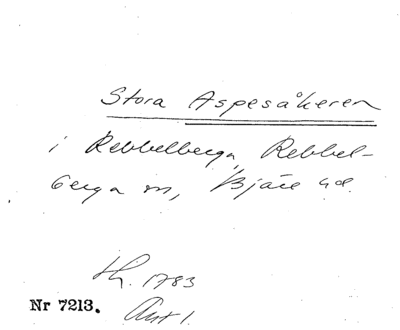 Stora Aspesåkeren
i Rebbelberga, Rebbel-
berga sn, Bjäre hd.
Lh. 1783
Akt 1.
Nr 7213.